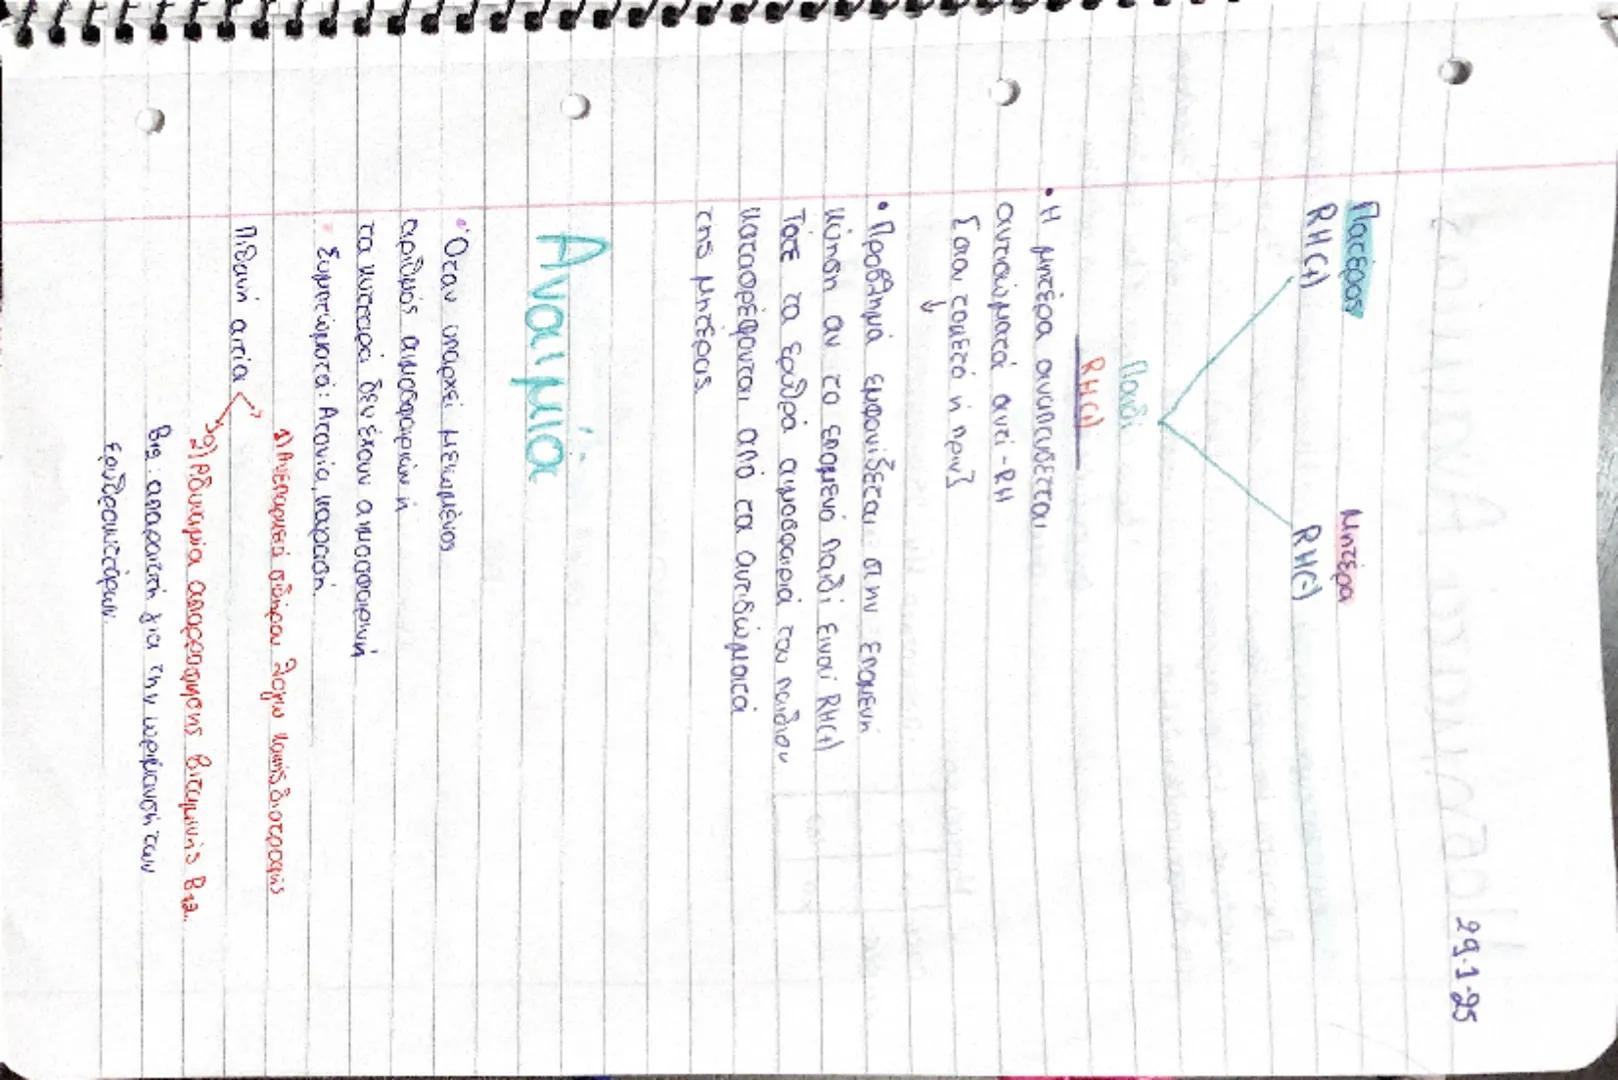 29-1-25
Πατέρας Μητέρα
RH(+) RH(-)
Παιδί
RH(+)
• Η μητέρα αναπτύσσεται
αντισώματά αντί-RH
Σσαι τοκετό ή πριν3
• Πρόβλημά εμφανίζεται στην επομενη
κύηση αν το επομενό παιδί ειναί RH(+)
Τότε τα ερυθρά αιμοσφαιριά του παιδιου
καταστρέφονται από τα αντισώματά
της μητέρας.
Αναιμία
• Όταν υπάρχεί μειωμένος
αριθμός αιμοσφαιρίων ή
τα κυτταρά δεν έχουν αιμοσφαιρίνη
• Συμπτώματά: Ατονία, κούραση
Πιθανή αιτία
1) Ανεπαρκειά σιδήρου λόγω κακής διατροφής
2) Αδυναμία απορρόφησης βιταμινής B12.
B12: απαραιτή για την ωρίμανσή των
ερυθροκυτάρων.